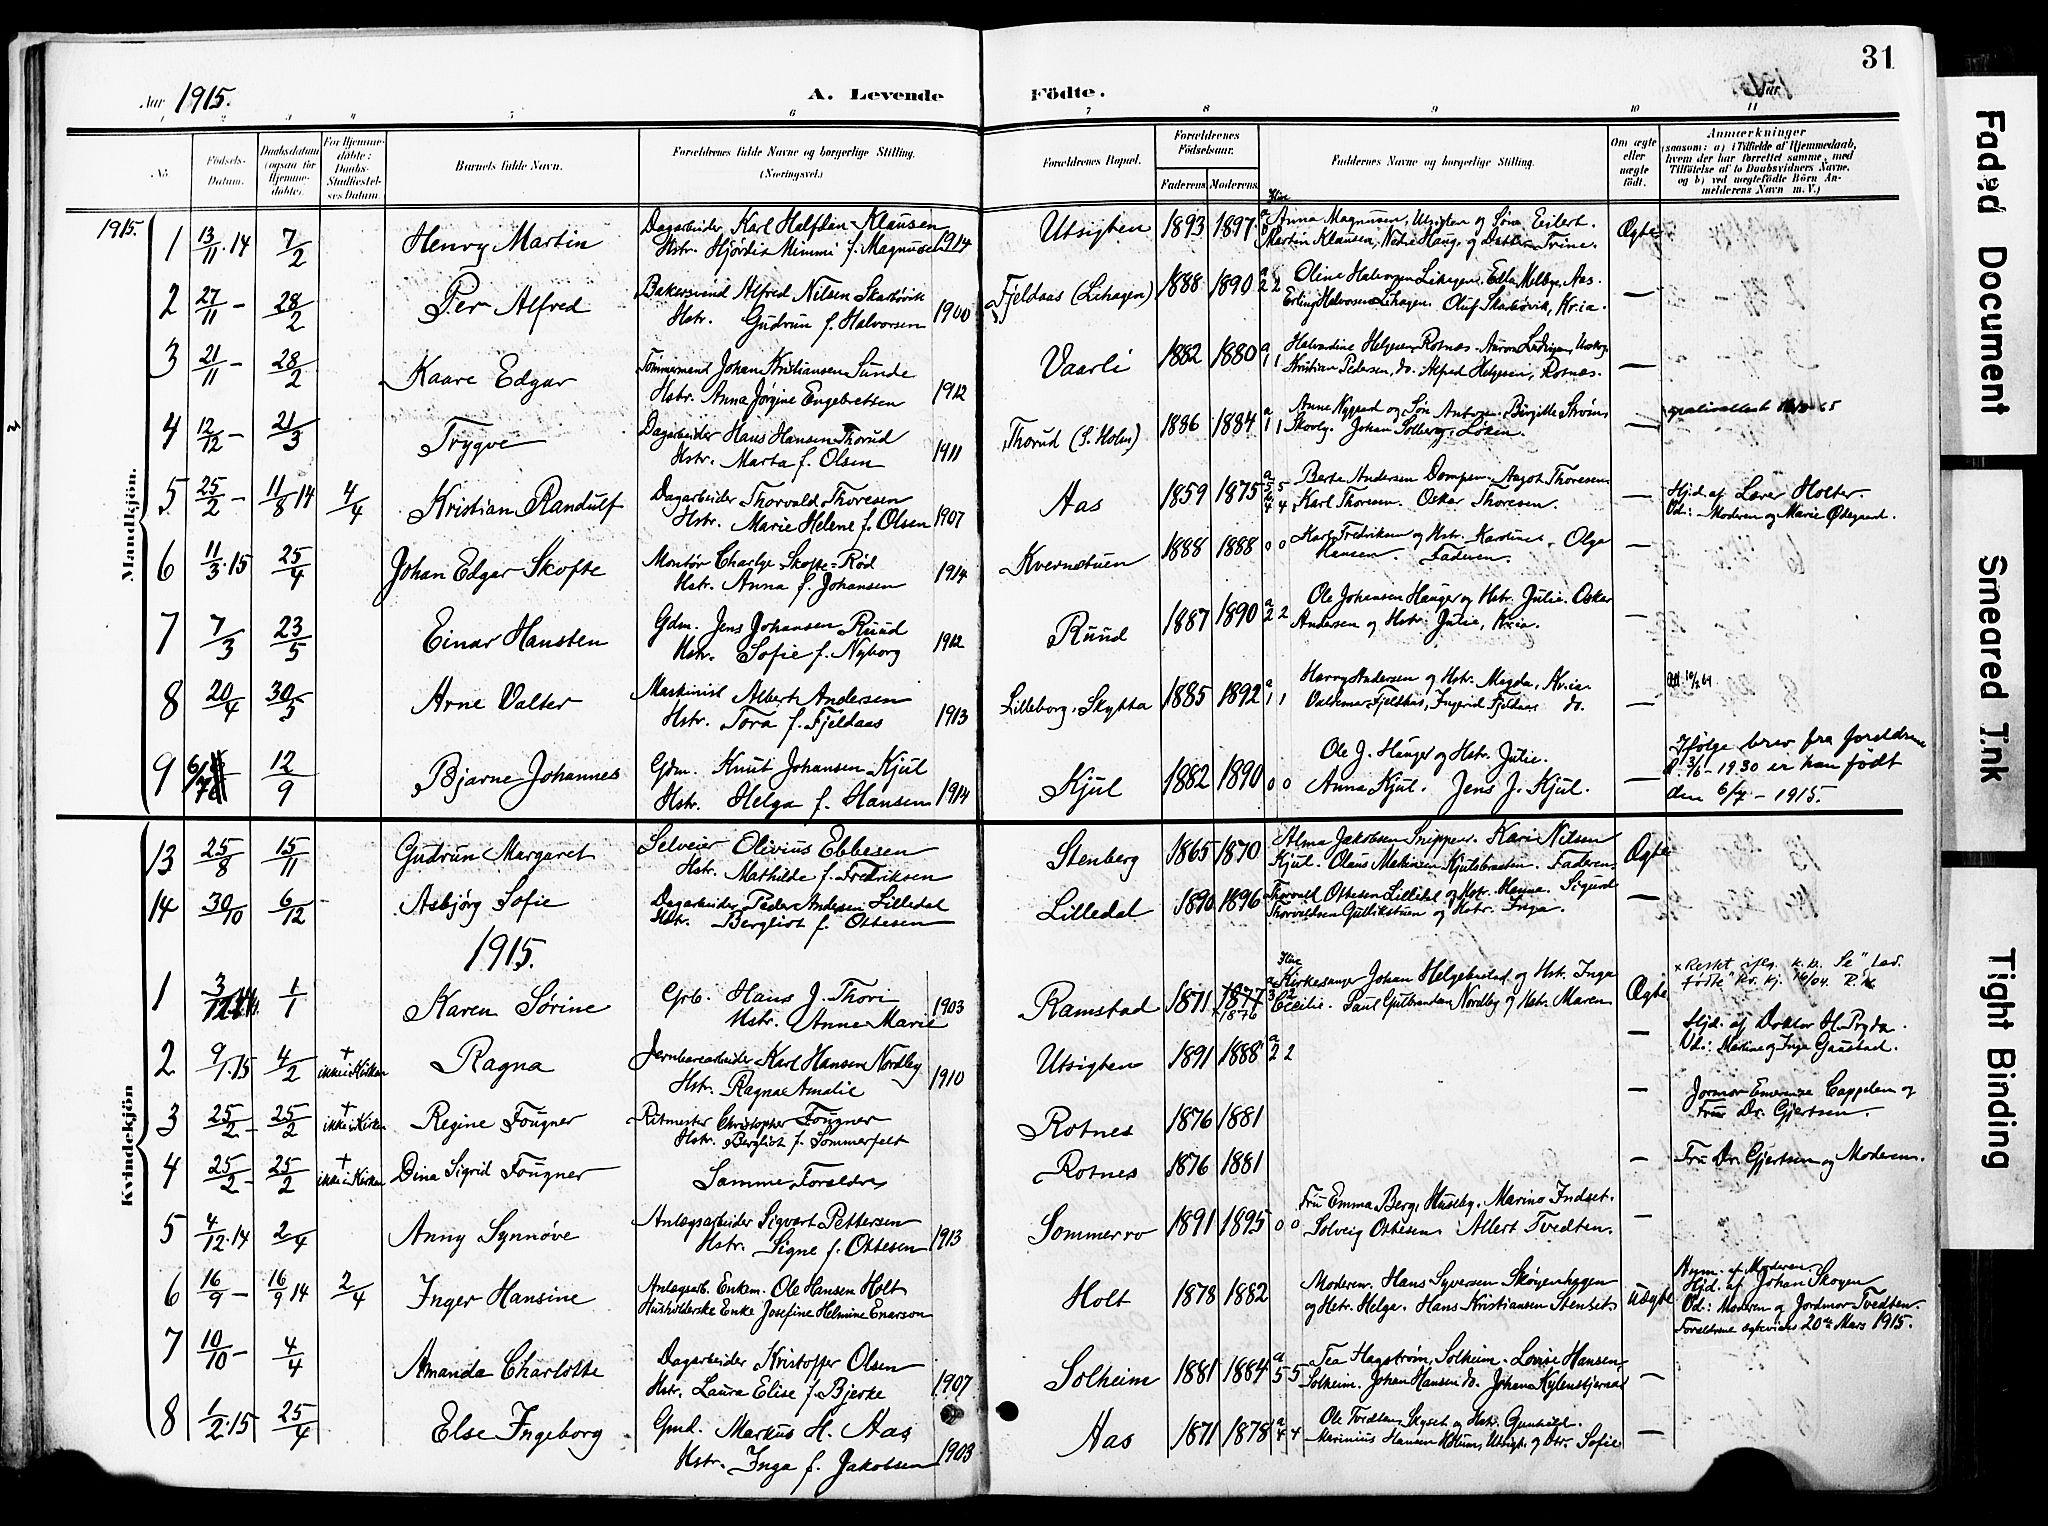 31
Aar 1915.
A. Levende Födte.
Aar
1 2 3 4 5 6 7 8 9 10 11
No.
Födsels-Datum.
Daabsdatum (ogsaa for Hjemmedöbte).
For Hjemmedöbte: Daabs-Stadfæstelses Datum.
Barnets fulde Navn.
Forældrenes fulde Navne og borgerlige Stilling. (Næringsvei.)
Forældrenes Bopæl.
Forældrenes Födselsaar.
Faderens. Moderens.
Faddernes Navne og borgerlige Stilling.
Om ægte eller uægte födt.
Anmærkninger
(saasom: a) i Tilfælde af Hjemmedaab, hvem der har forrettet samme, med Tilföielse af to Daabsvidners Navne, og b) ved uægtefödte Börn Anmelderens Navn m. V.)
Mandkjön.
1915.
1 13/11·14 7/2 Henry Martin Dagarbeider Karl Halfdan Klausen
Hstr. Hjördis Mimmi f. Magnusen 1914 Utsigten 1893 1897 Anna Magnusen, Utsigten og Søn Eilert.
Martin Klausen, Nedre Haug, og Datter Trine. Ægte
2 27/11 – 28/2 Per Alfred Bakersvend Alfred Nilsen Skarbövik
Hstr. Gudrun f. Halvorsen 1900 Fjeldaas (Lihagen) 1888 1890 a 2 2 Oline Halvorsen Lihagen, Edla Melbye, Aas.
Erling Halvorsen Lihagen. Oluf Skarbövik, Kr.ia. —
3 21/11 – 28/2 Kaare Edgar Tömmermand Johan Kristiansen Sunde
Hstr. Anna Jørgine Engebretsen 1912 Vaarli 1882 1880 a 1 1 Halvardine Helgesen, Rotnæs.
Kristian Pedersen, do. Alfred Helgesen, Rotnæs. —
4 12/12 – 21/3 Trygve Dagarbeider Hans Hansen Thorud
Hstr. Marta f. Olsen 1911 Thorud (S. Holm) 1886 1884 a 1 1 Anne Nygaard og Søn Anton. Birgitte Strøm,
Skovly. Johan Solberg, Løken. —
5 25/2 – 11/8 14 4/4 Kristian Randulf Dagarbeider Thorvald Thoresen
Hstr. Marie Helene f. Olsen 1907 Aas 1859 1875 a 5 5 4 4 Berte Andersen Dompen. Aagot Thoresen
Karl Thoresen. Oskar Thoresen. — Hjd. af Lærer Holter.
Vd: Moderen og Marie Ødegaard.
6 11/3·15 25/4 Johan Edgar Skofte Montör Charlye Skofte-Röd
Hstr. Anna f. Johansen 1914 Kvernstuen 1888 1888 0 0 Karl Fredriksen og Hstr. Kardine. Olga
Hansen. Faderen. —
7 7/3 23/5 Einar Hansten Gdm. Jens Johansen Ruud
Hstr. Sofie f. Nyborg 1912 Ruud 1887 1890 a 2 2 Ole Johansen Hauger og Hstr. Julie. Oskar
Andersen og Hstr. Julie, Kr.ia. —
8 20/4 30/5 Arne Valter Maskinist Albert Andersen
Hstr. Tora f. Fjeldaas 1913 Lilleborg, Skytta 1885 1892 a 1 1 Harry Andersen og Hstr. Magda, Kr.ia.
Valdemar Fjeldaas, Ingerid Fjeldaas do. —
9 6/7 12/9 Bjarne Johannes Gdm. Knut Johansen Kjul
Hstr. Helga f. Hansen 1914 Kjul 1882 1890 0 0 Ole J. Hauger og Hstr. Julie.
Anna Kjul. Jens J. Kjul. — Ifölge brev fra foreldrene
d. 3/6 – 1930 er han födt
den 6/7 – 1915.
Kvindekjön
13 25/8 15/11 Gudrun Margaret Selveier Olivius Ebbesen
Hstr. Mathilde f. Fredriksen Stenberg 1865 1870 Alma Jakobsen Snippen. Kari Nilsen
Kjul. Olaus Kjulsbraaten. Faderen. Ægte
14 30/10 6/12 Asbjörg Sofie Dagarbeider Peder Andersen Lilledal
Hstr. Bergliot f. Ottesen Lilledal 1890 1896 Thorvald Ottesen Lilledal og Hstr. Hanna. Sigurd
Thorvaldsen Gulliksstuen og Hstr. Inga. —
1915.
1 3/12 1/1 Karen Sörine Grb. Hans J. Thori
Hstr. Anne Marie 1903 Ramstad 1871 1877 × 1876 Kirkesanger Johan Helgebostad og Hstr. Inga
Cecilie. Paul Gulbrandsen Nordby og Hstr. Maren Ægte
2 9/1·15 4/2 + ikke i Kirken Ragna Jernbanearbeider Karl Hansen Nordby
Hstr. Ragna Amalie 1910 Utsigten 1891 1888 a 2 2 — Hjd. af Doktor H. Pryds.
Vd: Martine og Inga Gaustad.
3 25/2 – 25/2 + ikke i Kirken Regine Fougner Ritmester Christopher Fougner
Hstr. Bergliot f. Sommerfelt Rotnes 1876 1881 — Jormor Emerenze Cappelen og
Fru Dr. Gjertsen.
4 25/2 – 25/2 + ikke i Kirken Dina Sigrid Fougner Samme Foreldre Rotnes 1876 1881 — Fru Dr. Gjertsen og Moderen.
5 4/12·14 2/4 Anny Synnöve Anlægsarbeider Sigvart Pettersen
Hstr. Signe f. Ottesen 1913 Sommerro 1891 1895 0 0 Fru Emma Berg, Huseby. Marino Indset.
Solveig Ottesen. Allert Tvedten. —
6 16/9 – 16/9 14 2/4 Inger Hansine Anlægsarb. Enkem. Ole Hansen Holt
Husholderske Enke Josefine Helmine Enarson Holt 1878 1882 Moderen. Hans Syversen Skøyenhygen
og Hstr. Helga. Hans Kristiansen Stenset. Uægte Anm. af Moderen.
Hjd. af Johan Skøyen
Vd: Moderen og Jordmor Tvedten.
Foreldrene egteviede 20de Mars 1915.
7 10/10 – 4/4 Amanda Charlotte Dagarbeider Kristoffer Olsen
Hstr. Laura Elise f. Bjerke 1907 Solheim 1881 1884 a 5 5 Tea Hagström, Solheim. Lovise Hansen
Solheim. Johan Hansen do. Johan —
8 1/2·15 25/4 Else Ingeborg Gmd. Markus H. Aas
Hstr. Inga f. Jakobsen 1903 Aas 1871 1878 a 4 4 Ole Tvedten Skyset og Hstr. Gunhild.
Marinius Hansen, Utsigt. og Dtr. Sofie —
Faded Document
Smeared Ink
Tight Binding